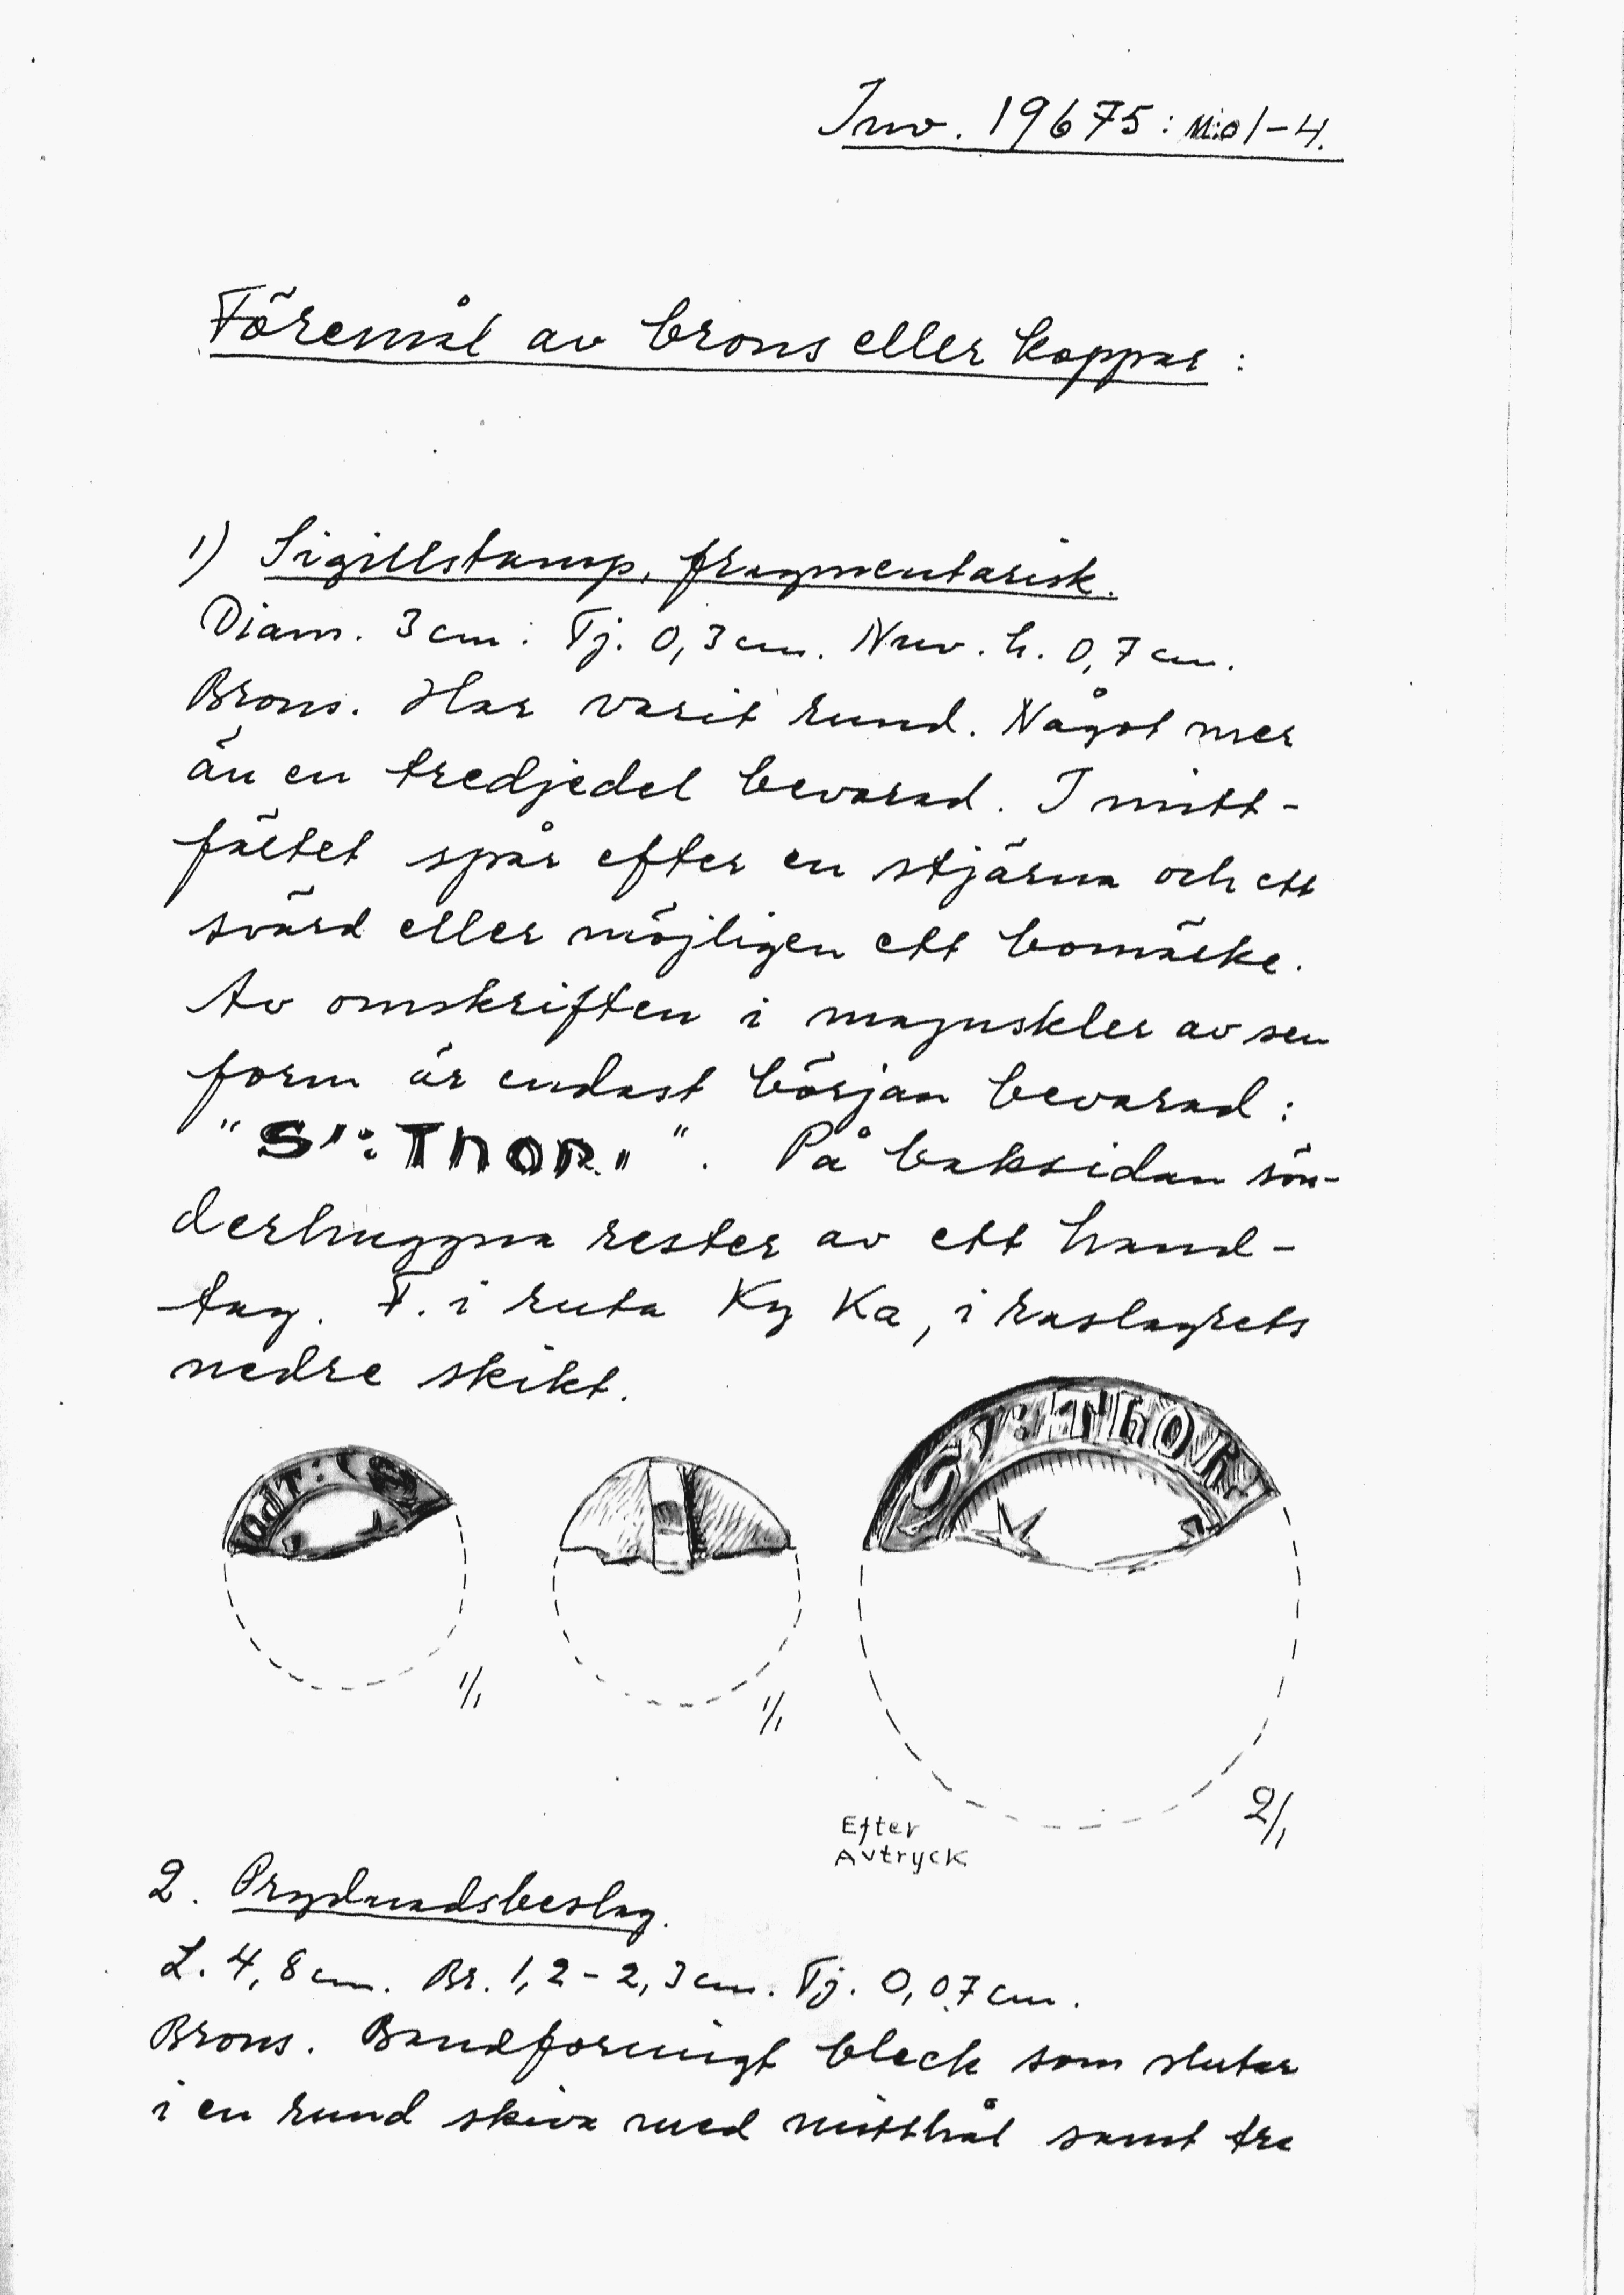 Inv. 19675: M:o 1-4.
Föremål av brons eller koppar:
1) Sigillstamp, fragmentarisk.
Diam. 3 cm. Tj. 0,3 cm. Nuv. h. 0,7 cm.
Brons. Har varit rund. Något mer
än en tredjedel bevarad. I mitt-
fältet spår efter en stjärna och ett
svärd eller möjligen ett bomärke.
Av omskriften i majuskler av sen
form är endast början bevarad:
"S': THOR". På baksidan sön-
derhuggna rester av ett hand-
tag. F. i ruta Ky Ka, i raslagrets
nedre skikt.
S': THOR
1/1
1/1
2/1
Efter
Avtryck
2. Prydnadsbeslag.
L. 4,8 cm. Br. 1,2-2,3 cm. Tj. 0,07 cm.
Brons. Bandformigt bleck som slutar
i en rund skiva med mitthål samt tre